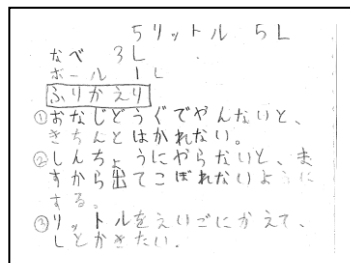 5リットル 5L
なべ 3L
ボール 1L
ふりかえり
①おなじどうぐでやんないと、
きちんとはかれない。
②しんちょうにやらないと、ま
すから出てこぼれないように
する。
③リットルをえいごにかえて、
Lとかきたい.